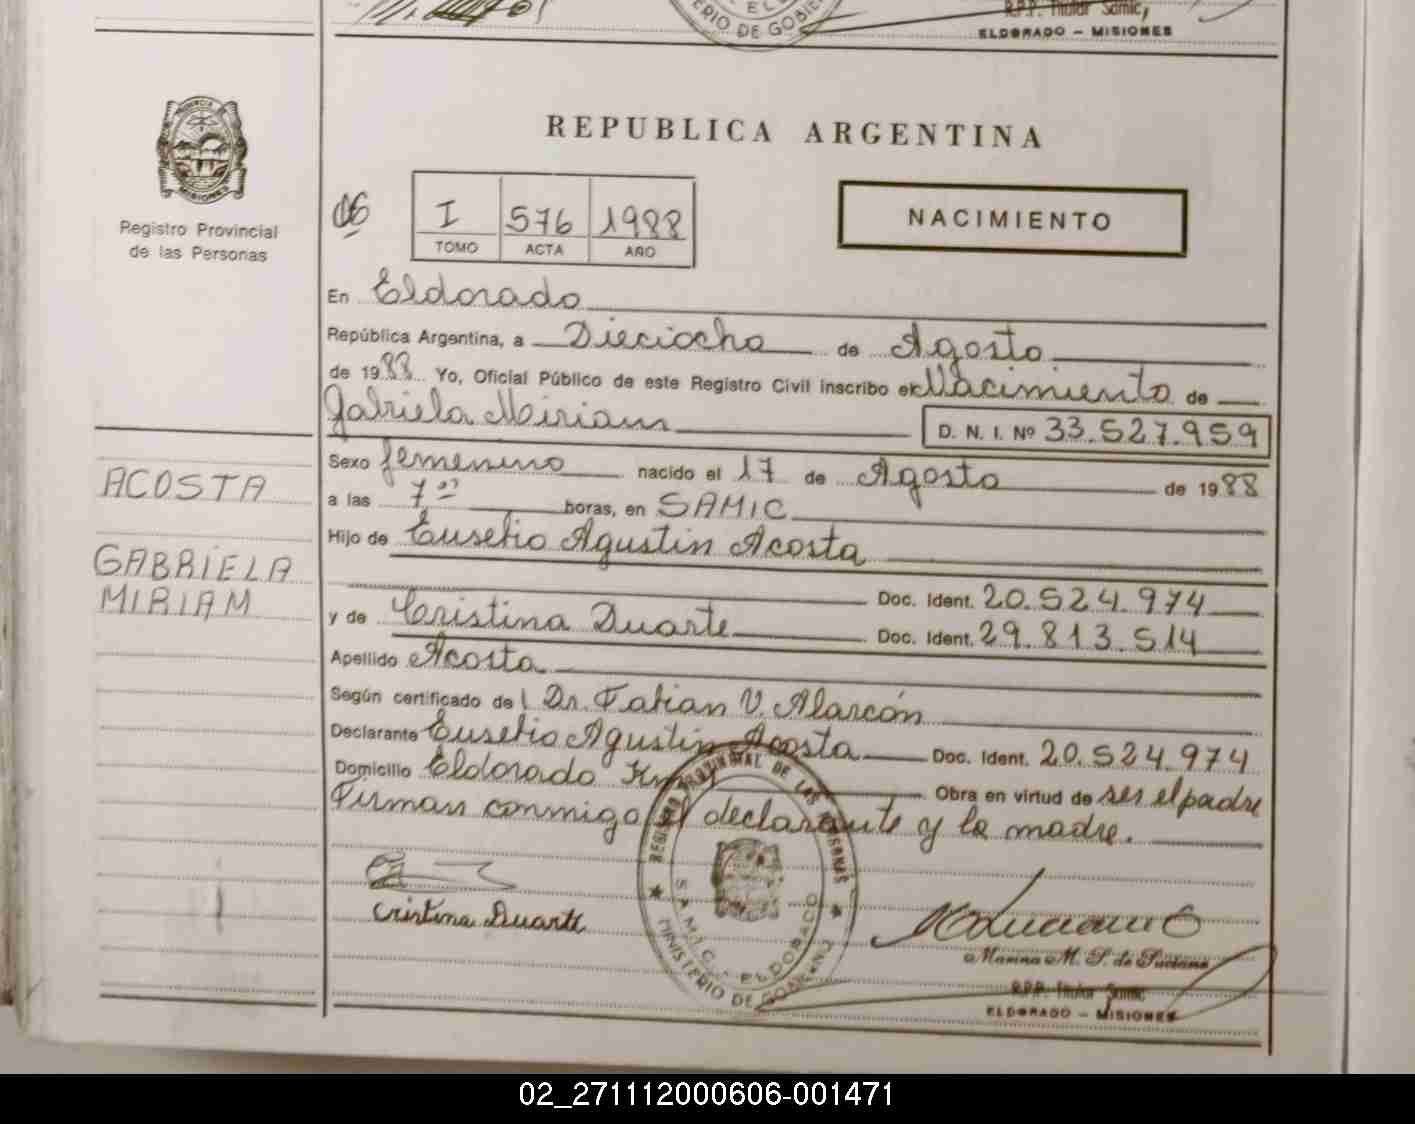 ELDORADO - MISIONES
REPUBLICA ARGENTINA
Registro Provincial
de las Personas
06
I 576 1988
TOMO ACTA AÑO
NACIMIENTO
En Eldorado
República Argentina, a Dieciocho de Agosto
de 1988 Yo, Oficial Público de este Registro Civil inscribo el Nacimiento de
Gabriela Miriam D. N. I. Nº 33.527.959
Sexo femenino nacido el 17 de Agosto de 1988
a las 7 horas, en SAMIC
Hijo de Eusebio Agustin Acosta
Doc. Ident. 20.524.974
y de Cristina Duarte Doc. Ident. 29.813.514
Apellido Acosta
Según certificado de l Dr. Fabian V. Alarcón
Declarante Eusebio Agustin Acosta Doc. Ident. 20.524.974
Domicilio Eldorado Obra en virtud de ser el padre
Firman conmigo el declarante y la madre.
ACOSTA
GABRIELA
MIRIAM
Cristina Duarte
REGISTRO PROVINCIAL DE LAS PERSONAS
S.A.M.I.C. - ELDORADO
MINISTERIO DE GOBIERNO
Marina M. S. de Luciano
R.P.P. Titular Samic,
ELDORADO - MISIONES
02_271112000606-001471